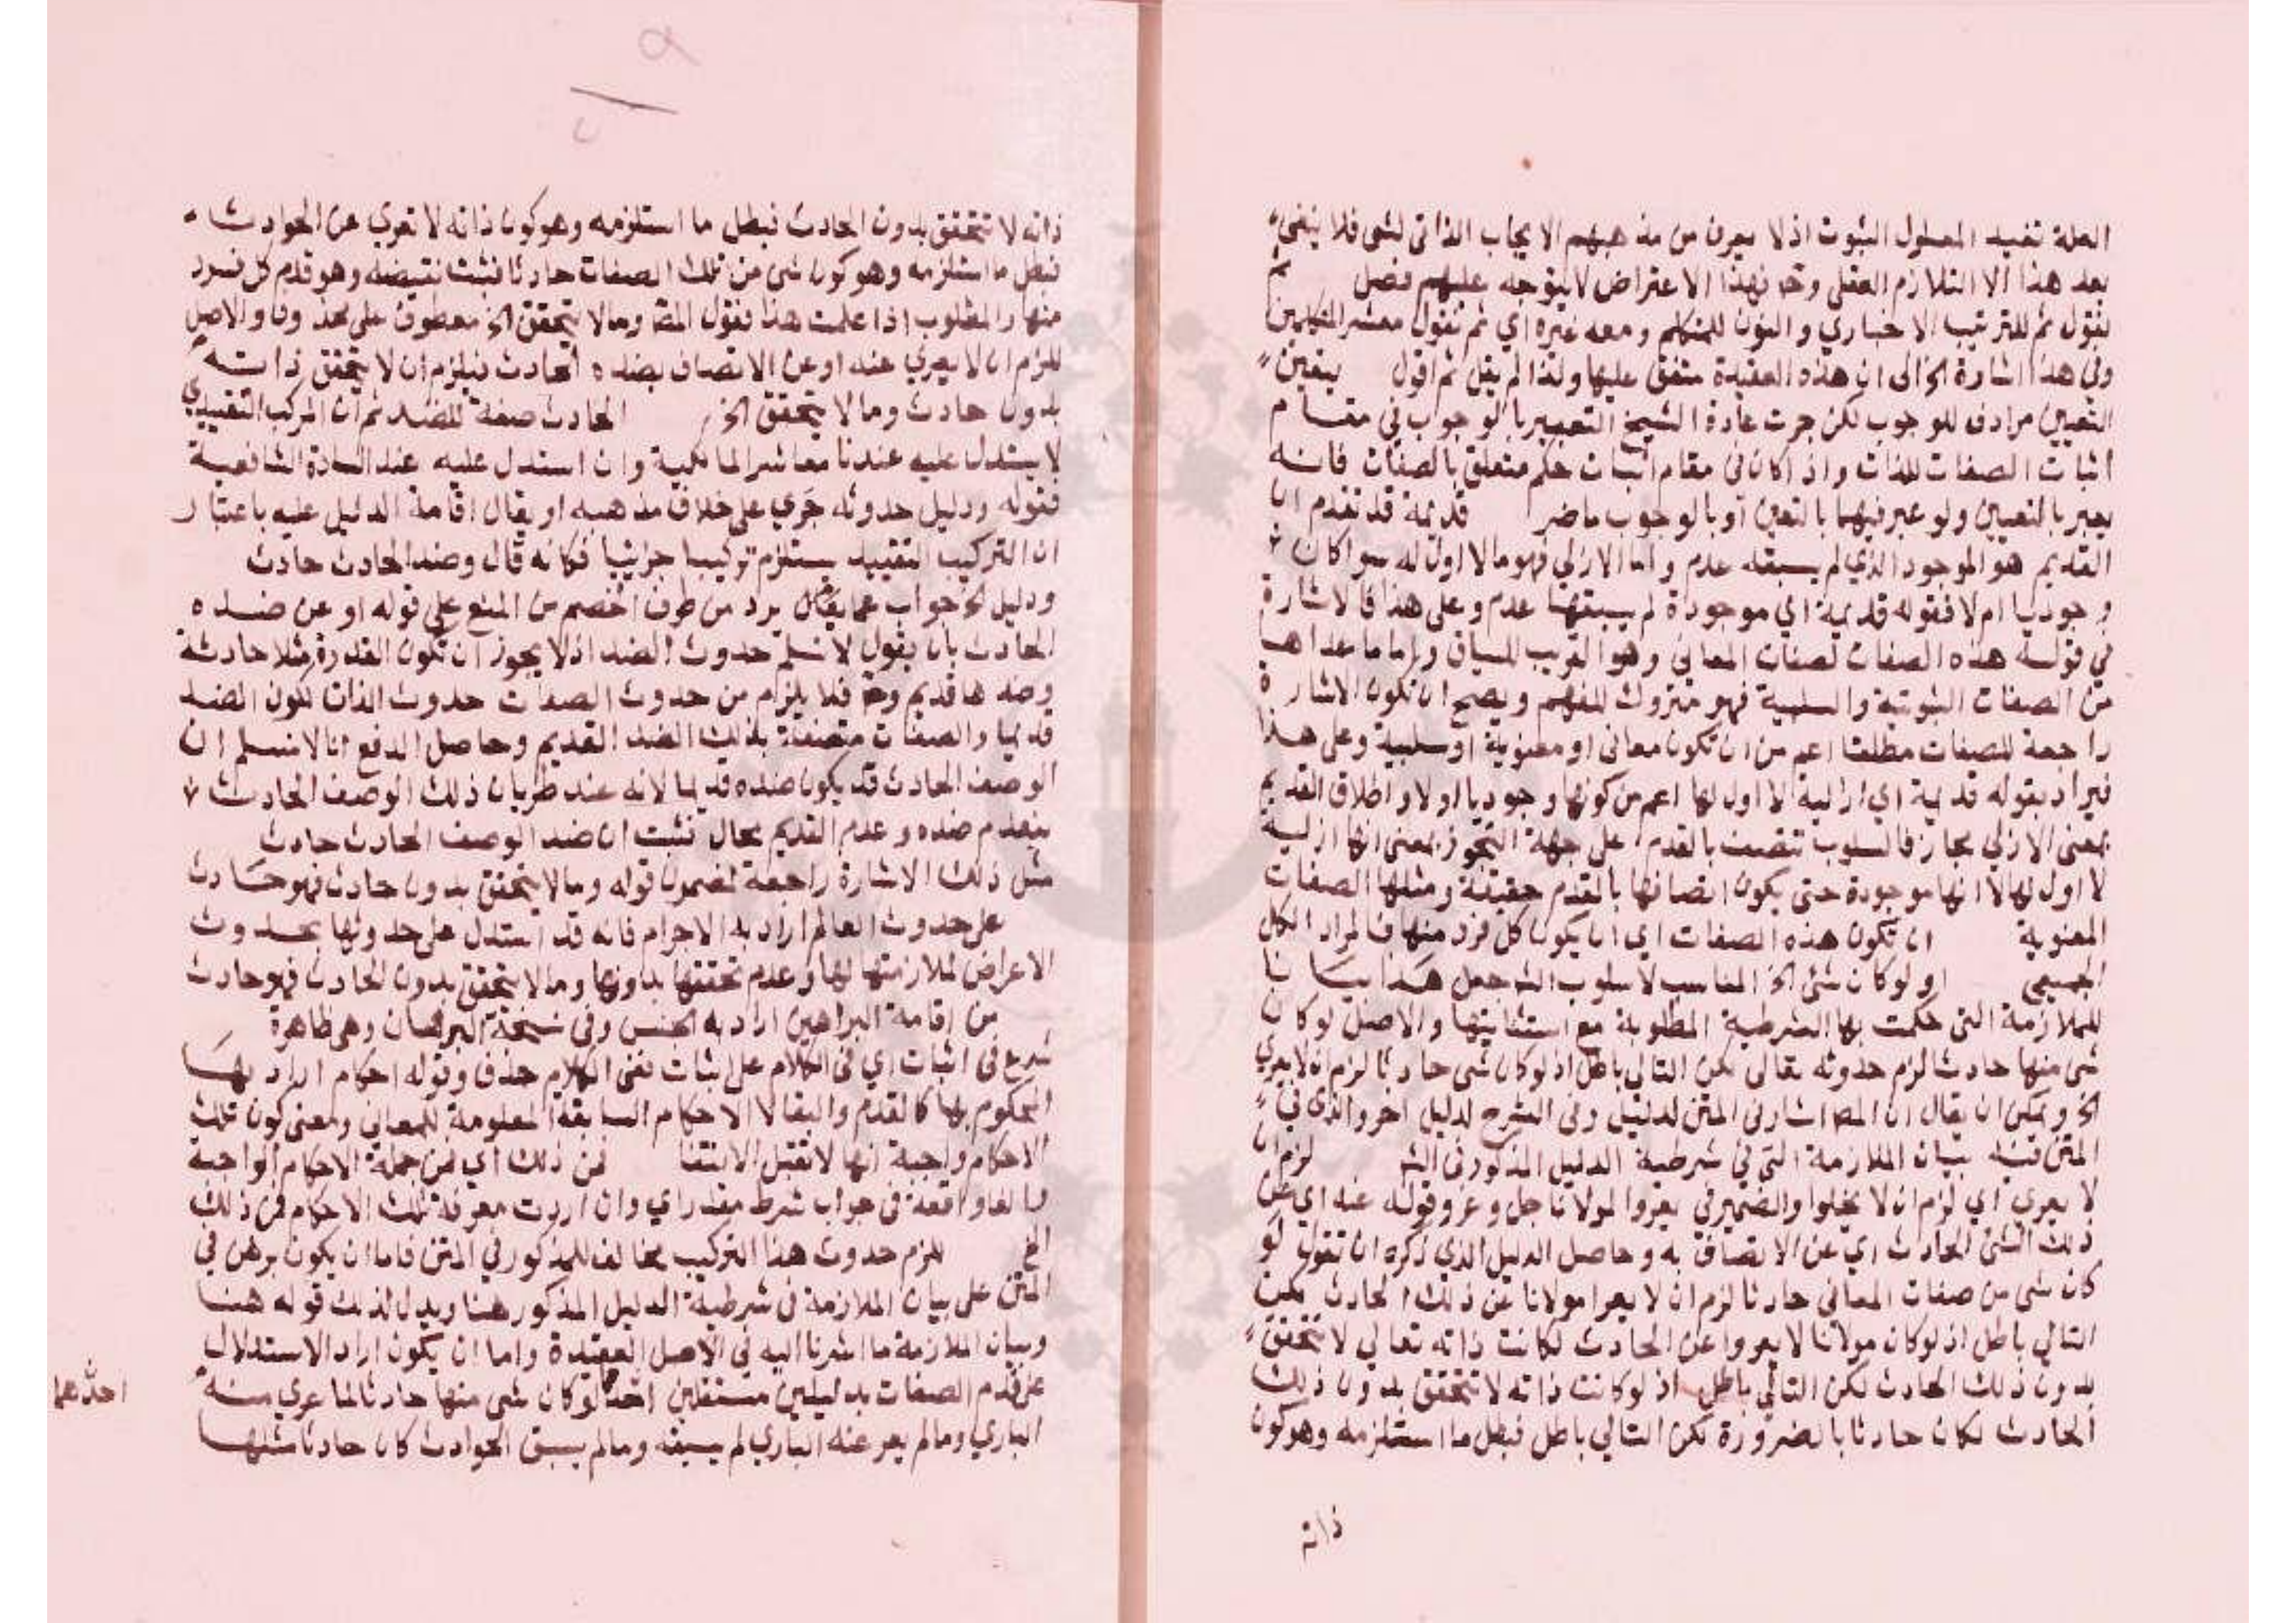 العلة تفيد المعلول الثبوت اذ لا يعرف من مذهبهم الا يجاب الذاتي لشي فلا ينفي
بعد هذا الا التلازم العقلي وح فهذا الاعتراض لا يتوجه عليهم فصل ثم
نقول ثم للترتيب الاخباري والنون للمتكلم ومعه غيره اي ثم نقول معشر المتكلمين
وفي هذا اشارة الخ الى ان هذه العقيدة متفق عليها ولذا لم يقل ثم اقول يتعين
التعيين مرادف للوجوب لكن جرت عادة الشيخ التعبير بالوجوب في مقام
اثبات الصفات للذات واذا كان في مقام اثبات حكم متعلق بالصفات فانه
يعبر بالتعيين ولو عبر فيهما بالتعين او بالوجوب ما ضر قديمة قد تقدم ان
القديم هو الموجود الذي لم يسبقه عدم واما الازلي فهو ما لا اول له سوا كان
وجوديا ام لا فقوله قديمة اي موجودة لم يسبقها عدم وعلى هذا فالاشارة
في قوله هذه الصفات لصفات المعاني وهو القريب للسياق واما ما عداها
من الصفات الثبوتية والسلبية فهو متروك للفهم ويصح ان تكون الاشارة
راجعة للصفات مطلقا اعم من ان تكون معاني او معنوية او سلبية وعلى هذا
فيراد بقوله قديمة اي ازلية لا اول لها اعم من كونها وجوديا او لا واطلاق القديم
بمعنى الازلي مجاز فالسلوب تتصف بالقدم على جهة التجوز بمعنى انها ازلية
لا اول لها لا انها موجودة حتى يكون اتصافها بالقدم حقيقة ومثلها الصفات
المعنوية ان تكون هذه الصفات اي ان يكون كل فرد منها فالمراد الكل
الجميعي او لو كان شي الخ المناسب لاسلوب الشـ جعل هذا بيانا
للملازمة التي حكمت بها الشرطية المطلوبة مع استثنايتها والاصل لو كان
شي منها حادثا لزم حدوثه تعالى لكن التالي باطل اذ لو كان شي حادثا لزم ان لا يعري
الخ ويمكن ان يقال ان المصـ اشار في المتن لدليل وفي الشرح لدليل اخر والذي في
المتن فيه بيان الملازمة التي في شرطية الدليل المذكور في الشـ لزم ان
لا يعرى اي لزم ان لا يخلوا والضمير في يعروا لمولانا جل وعز وقوله عنه اي عن
ذلك الشي الحادث اي عن الاتصاف به وحاصل الدليل الذي ذكره ان تقول لو
كان شي من صفات المعاني حادثا لزم ان لا يعرا مولانا عن ذلك الحادث لكن
التالي باطل اذ لو كان مولانا لا يعروا عن الحادث لكانت ذاته تعالي لا تتحقق
بدون ذلك الحادث لكن التالي باطل اذ لو كانت ذاته لا تتحقق بدون ذلك
الحادث لكان حادثا بالضرورة لكن التالي باطل فبطل ما استلزمه وهو كون
ذاته
ذاته لا تتحقق بدون الحادث فبطل ما استلزمه وهو كون ذاته لا تعرى عن الحوادث
فبطل ما استلزمه وهو كون شي من تلك الصفات حادثا فثبت نقيضه وهو قدم كل فرد
منها والمطلوب اذا علمت هذا فقول المصـ وما لا يتحقق الخ معطوف على محذوف والاصل
للزم ان لا يعري عنه او عن الاتصاف بضده الحادث فيلزم ان لا يتحقق ذاته
بدون حادث وما لا يتحقق الخ الحادث صفة للضد ثم ان المركب التقييدي
لا يستدل عليه عندنا معاشر المالكية وان استدل عليه عند السادة الشافعية
فقوله ودليل حدوثه جَري على خلاف مذهبه او يقال اقامة الدليل عليه باعتبار
ان التركيب التقييد يستلزم تركيبا خبريا فكانه قال وضد الحادث حادث
ودليل الخ جواب عما يقال يرد من طرف الخصم من المنع على قوله او عن ضده
الحادث بان يقول لا نسلم حدوث الضد اذ لا يجوز ان تكون القدرة مثلا حادثة
وضدها قديم وح فلا يلزم من حدوث الصفات حدوث الذات لكون الضد
قديما والصفات متصفة بذلك الضد القديم وحاصل الدفع انا لا نسلم ان
الوصف الحادث قد يكون ضده قديما لانه عند طريان ذلك الوصف الحادث
ينعدم ضده وعدم القديم محال فثبت ان ضد الوصف الحادث حادث
مثل ذلك الاشارة راجعة لمضمون قوله وما لا يتحقق بدون حادث فهو حادث
على حدوث العالم اراد به الاجرام فانه قد استدل على حدوثها بحدوث
الاعراض لملازمتها لها وعدم تحققها بدونها وما لا يتحقق بدون الحادث فهو حادث
من اقامة البراهين اراد به الجنس وفي نسخة البرهان وهي ظاهرة
شرع في اثبات اي في الكلام على اثبات ففي الكلام حذف وقوله احكام اراد بها
المحكوم بها كالقدم والبقا لا الاحكام السابقة المعلومة للمعاني ومعنى كون تلك
الاحكام واجبة انها لا تقبل الانتفا فمن ذلك اي فمن جملة الاحكام الواجبة
فالفا واقعة في جواب شرط مقدر اي وان اردت معرفة تلك الاحكام فمن ذلك
الخ للزم حدوث هذا التركيب مخالف للمذكور في المتن فاما ان يكون برهن في
المتن على بيان الملازمة في شرطية الدليل المذكور هنا ويدل لذلك قوله هنا
وبيان الملازمة ما اشرنا اليه في الاصل العقيدة واما ان يكون اراد الاستدلال
على قدم الصفات بدليلين مستقلين احدهما لو كان شي منها حادثا لما عري منه
الباري وما لم يعر عنه الباري لم يسبقه وما لم يسبق الحوادث كان حادثا مثلها
احدهما